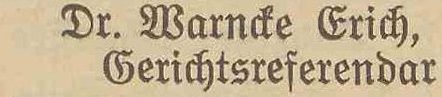 Dr. Warncke Erich,
Gerichtsreferendar